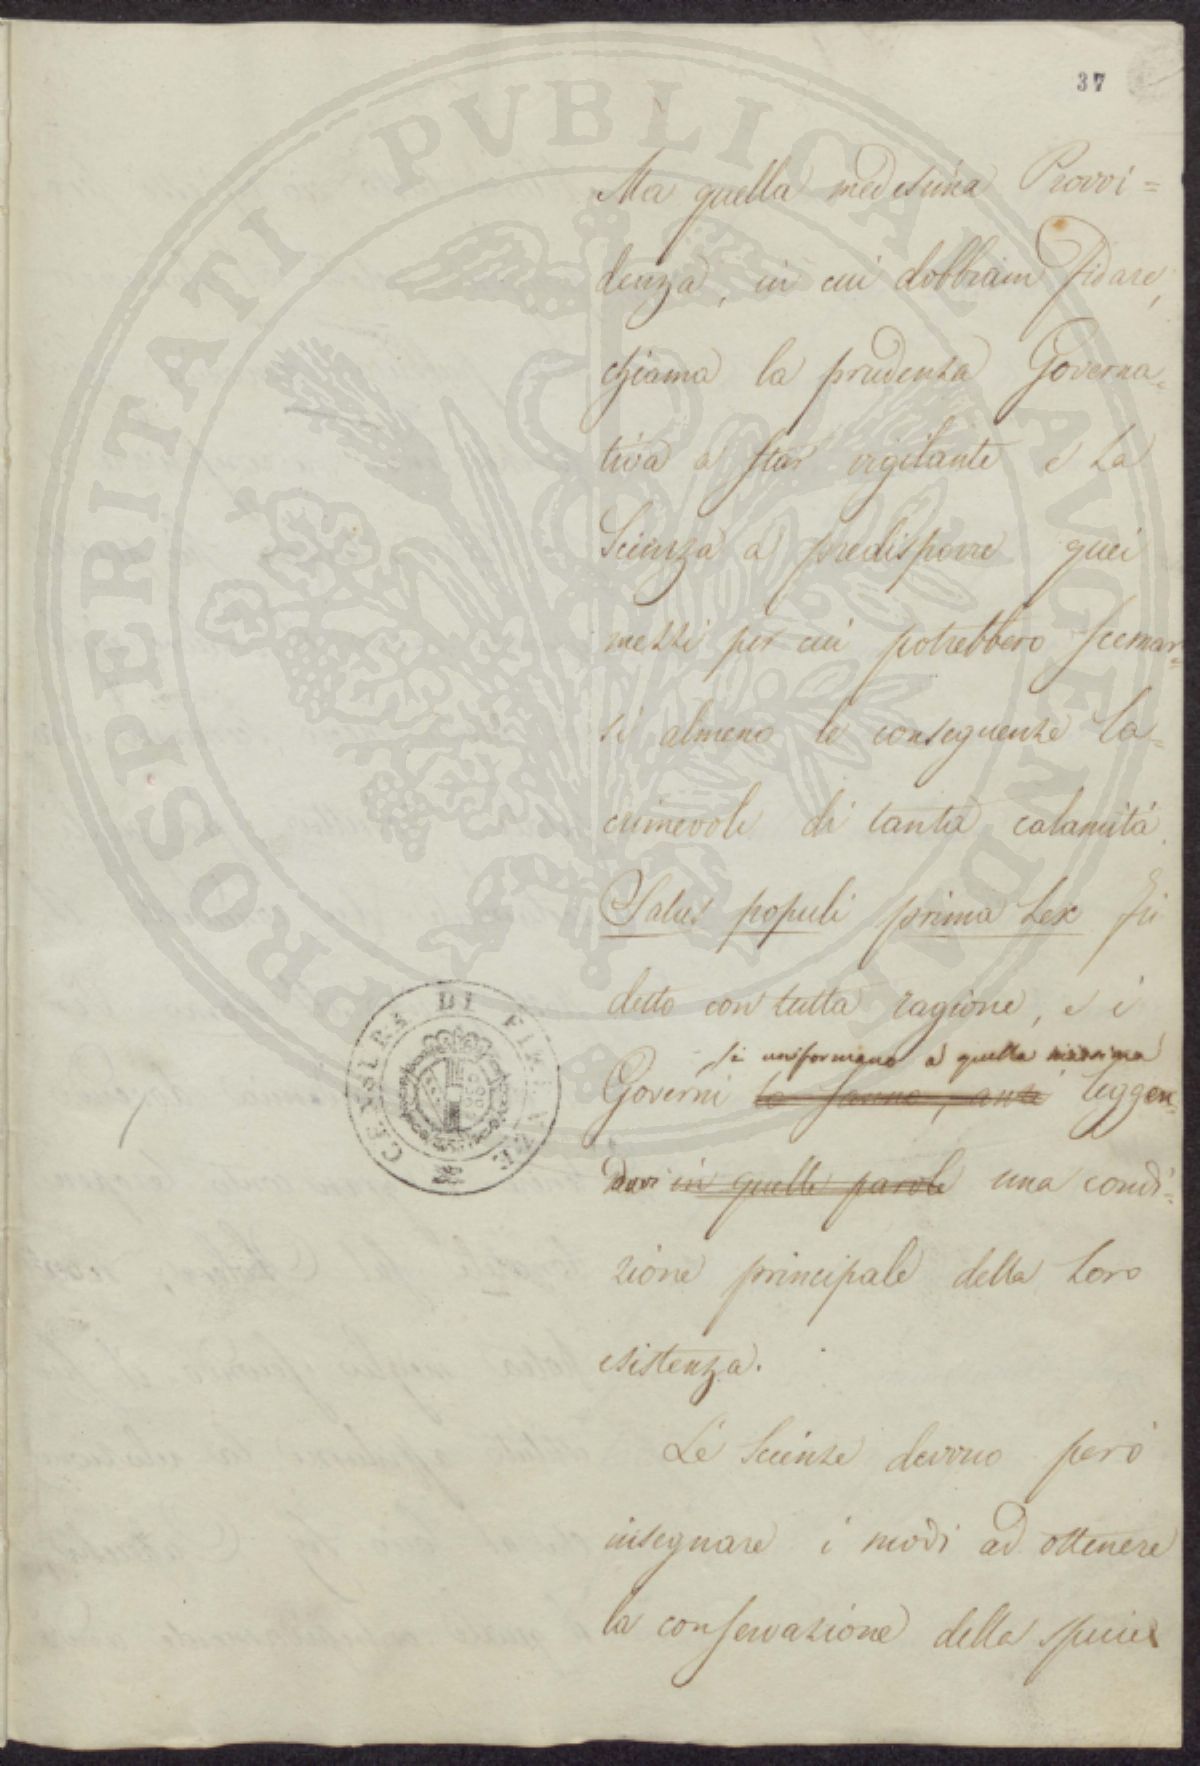 37
Ma quella medesima Provvi=
denza, in cui dobbiam fidare,
chiama la prudenza Governa=
tiva a star vigilante e la
Scienza a predisporre quei
mezzi per cui potrebbero scemar=
si almeno le conseguenze la=
crimevoli di tanta calamità.
Salus populi prima Lex fu
detto con tutta ragione, e i
si uniformano a quella massima
Governi lo sanno, anzi leggen=
dovi in quelle parole una condi=
zione principale della loro
esistenza.
Le Scienze devono però
insegnare i modi ad ottenere
la conservazione della specie
CENSURA DI FIRENZE
PROSPERITATI PVBLICAE AVGENDAE